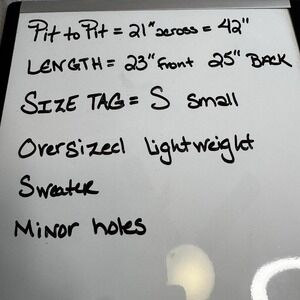 Pit to Pit = 21" across = 42"
LENGTH = 23" Front 25" BACK
SIZE TAG = S Small
Oversized lightweight
Sweater
Minor holes